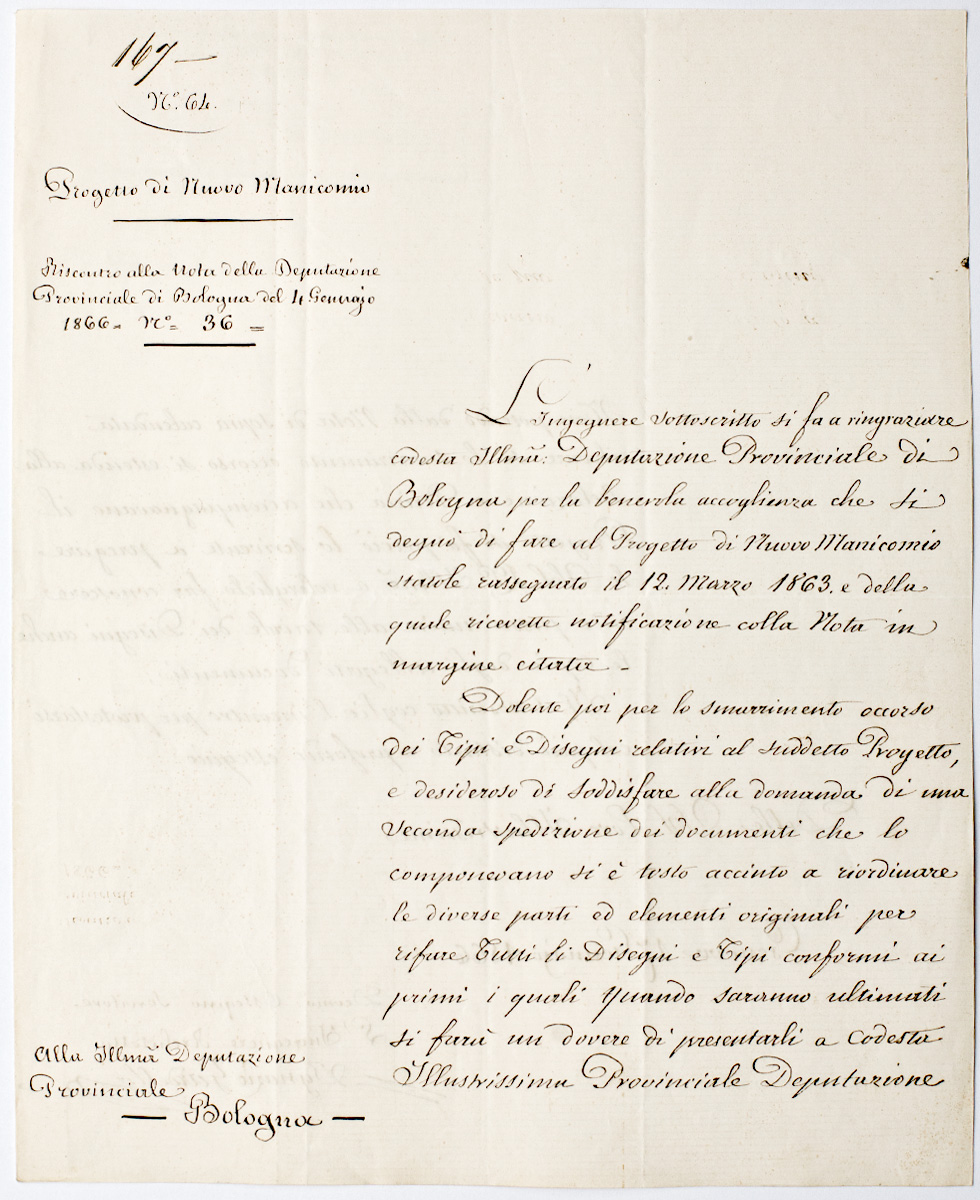 167
N.º 64.
Progetto di Nuovo Manicomio
Riscontro alla Nota della Deputazione
Provinciale di Bologna del 4 Gennajo
1866= Nº= 36 =
L'Ingegnere sottoscritto si fa a ringraziare
codesta Illmã: Deputazione Provinciale di
Bologna per la benevola accoglienza che si
degnò di fare al Progetto di Nuovo Manicomio
statole rassegnato il 12. Marzo 1863. e della
quale ricevette notificazione colla Nota in
margine citata -
Dolente poi per lo smarrimento occorso
dei Tipi e Disegni relativi al suddetto Progetto,
e desideroso di soddisfare alla domanda di una
seconda spedizione dei documenti che lo
componevano si è tosto accinto a riordinare
le diverse parti ed elementi originali per
rifare Tutti li Disegni e Tipi conformi ai
primi i quali quando saranno ultimati
si farà un dovere di presentarli a Codesta
Illustrissima Provinciale Deputazione
Alla Illmã Deputazione
Provinciale
— Bologna —